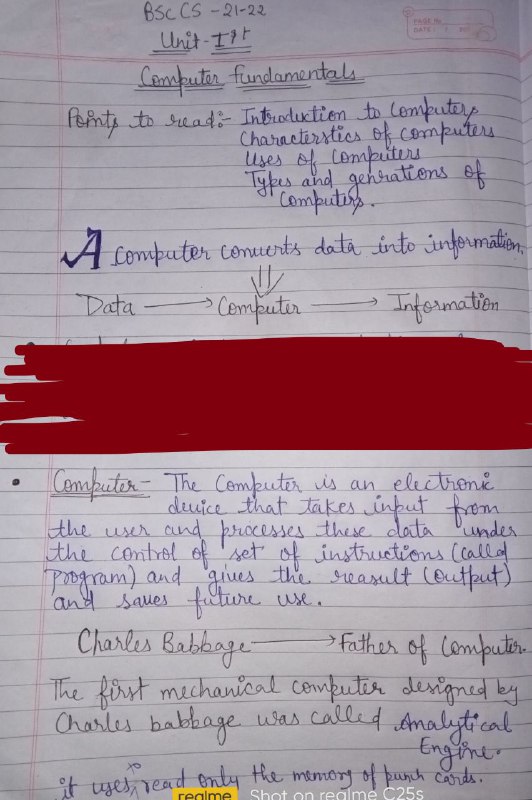 BSc CS - 21-22
PAGE No.
DATE: / / 20
Unit - Ist
Computer Fundamentals
Points to read:- Introduction to Computers
Characterstics of computers
Uses of Computers
Types and genrations of
Computers.
A Computer converts data into information.
Data → Computer → Information
• Computer - The Computer is an electronic
device that takes input from
the user and processes these data under
the control of set of instructions (called
program) and gives the reasult (output)
and saves future use.
Charles Babbage → Father of Computer.
The first mechanical computer designed by
Charles babbage was called Analytical
Engine.
it uses to read only the memory of punch cards.
realme Shot on realme C25s